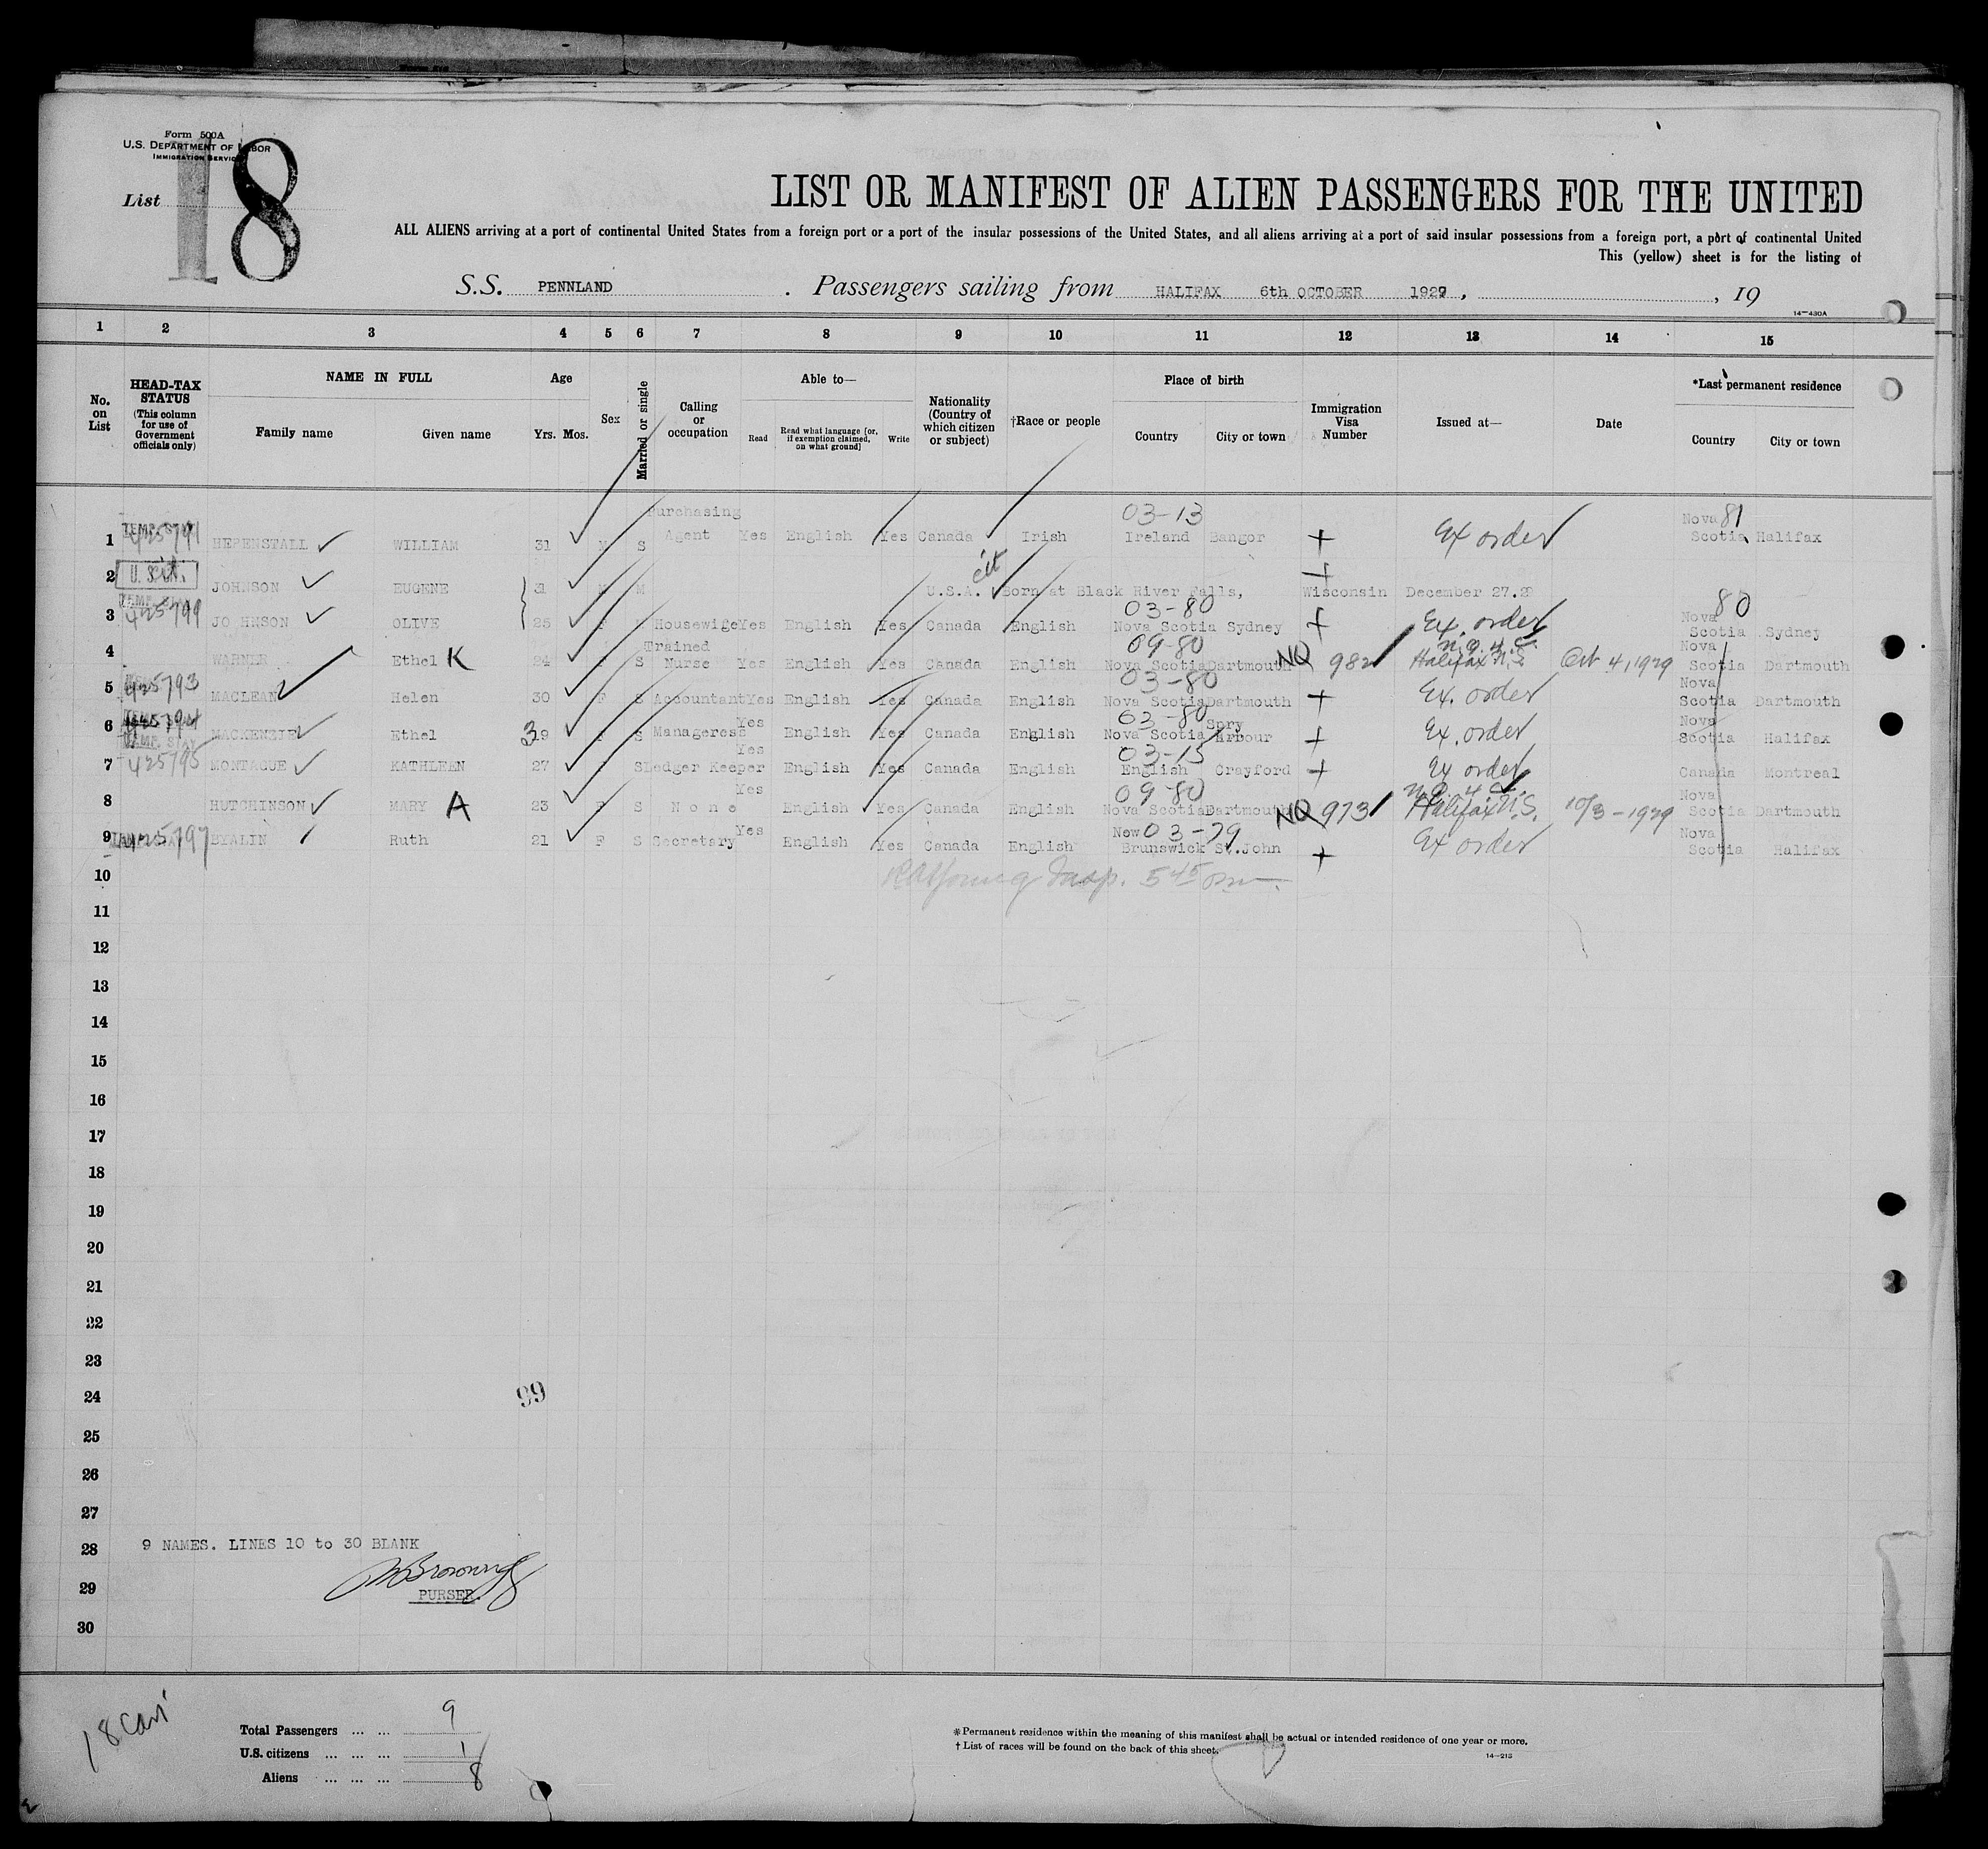 Form 500A
U.S. DEPARTMENT OF LABOR
IMMIGRATION SERVICE
List 18
LIST OR MANIFEST OF ALIEN PASSENGERS FOR THE UNITED
ALL ALIENS arriving at a port of continental United States from a foreign port or a port of the insular possessions of the United States, and all aliens arriving at a port of said insular possessions from a foreign port, a port of continental United
This (yellow) sheet is for the listing of
S.S. PENNLAND . Passengers sailing from HALIFAX 6th OCTOBER 1929 , , 19
14-430A
1 2 3 4 5 6 7 8 9 10 11 12 13 14 15
No. on List
HEAD-TAX STATUS (This column for use of Government officials only)
NAME IN FULL
Family name Given name
Age
Yrs. Mos.
Sex
Married or single
Calling or occupation
Able to—
Read
Read what language [or, if exemption claimed, on what ground]
Write
Nationality (Country of which citizen or subject)
†Race or people
Place of birth
Country City or town
Immigration Visa Number
Issued at—
Date
*Last permanent residence
Country City or town
1 TEMP. STAY 425791 HEPENSTALL WILLIAM 31 M S Purchasing Agent Yes English Yes Canada Irish 03-13 Ireland Bangor + Ex order Nova Scotia 81 Halifax
2 U.S. Cit. JOHNSON EUGENE 31 M M U.S.A. cit Born at Black River Falls, Wisconsin December 27.
3 TEMP. STAY JOHNSON OLIVE 25 F M Housewife Yes English Yes Canada English 03-80 Nova Scotia Sydney + Ex. order Nova Scotia 80 Sydney
4 WARNER Ethel K 24 F S Trained Nurse Yes English Yes Canada English 09-80 Nova Scotia Dartmouth NQ 982 Halifax N.S. Oct 4, 1929 Nova Scotia Dartmouth
5 425793 MACLEAN Helen 30 F S Accountant Yes English Yes Canada English 03-80 Nova Scotia Dartmouth + Ex. order Nova Scotia Dartmouth
6 425794 MACKENZIE Ethel 39 F S Manageress Yes English Yes Canada English 03-80 Nova Scotia Spry Arbour + Ex. order Nova Scotia Halifax
7 TEMP. STAY 425795 MONTAGUE KATHLEEN 27 S Ledger Keeper Yes English Yes Canada English 03-15 English Crayford + Ex order Canada Montreal
8 HUTCHINSON MARY A 23 F S None Yes English Yes Canada English 09-80 Nova Scotia Dartmouth NQ 973 Halifax N.S. 10/3-1929 Nova Scotia Dartmouth
9 425797 BYALIN Ruth 21 F S Secretary Yes English Yes Canada English 03-79 New Brunswick St.John + Ex order Nova Scotia Halifax
10 Insp. 5 45 pm
11
12
13
14
15
16
17
18
19
20
21
22
23
24
99
25
26
27
28 9 NAMES. LINES 10 to 30 BLANK
29 PURSER.
30
Total Passengers ... ... 9
U.S. citizens ... ... ... 1
Aliens ... ... ... 8
*Permanent residence within the meaning of this manifest shall be actual or intended residence of one year or more.
†List of races will be found on the back of this sheet.
14-213